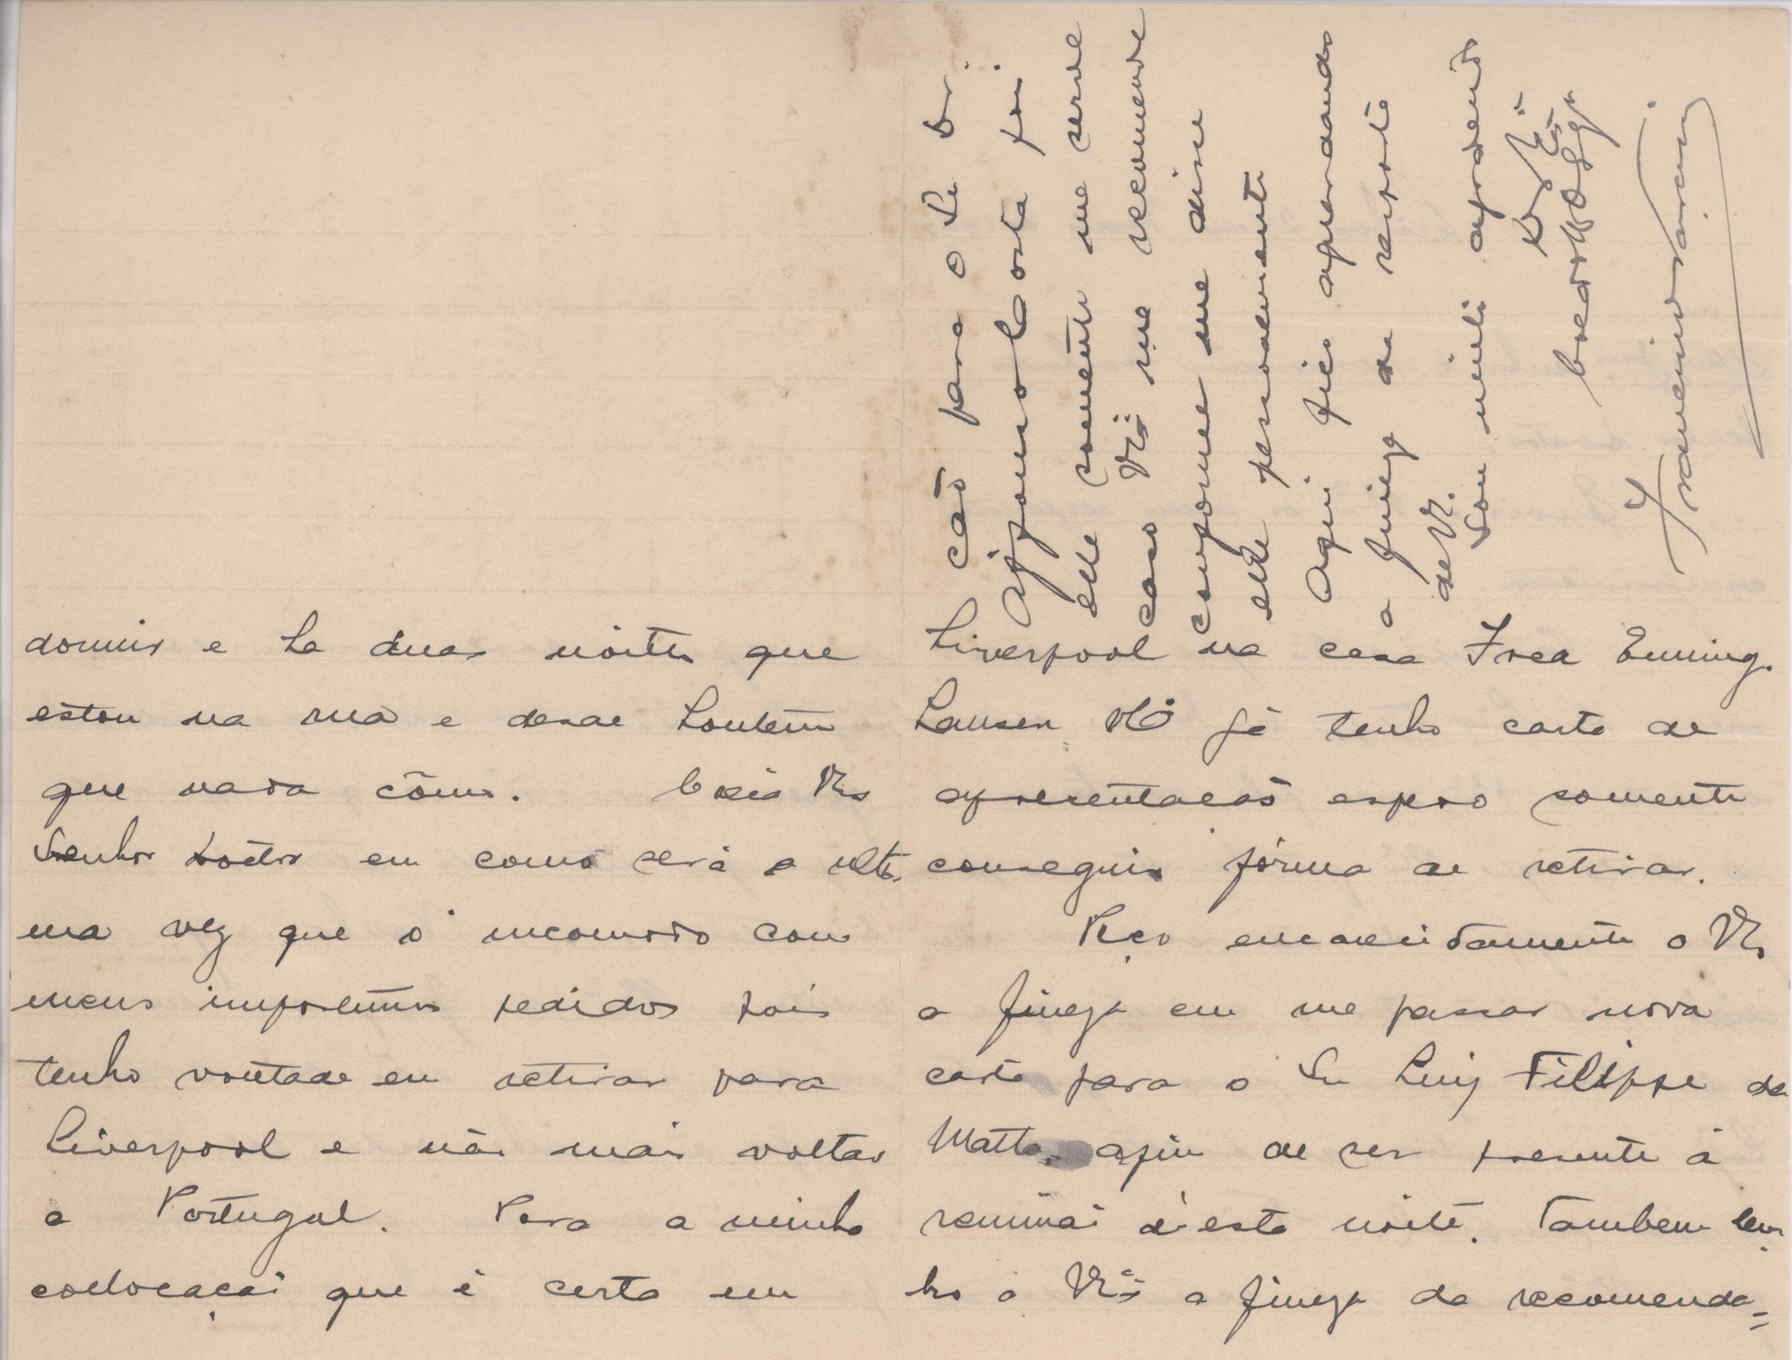 dormir e ha duas noites que
estou na rua e desde hontem
que nada cômo. Creia Vª
Senhor Doctor em como será a ulti-
ma vez que o incomodo com
meus impertinentes pedidos pois
tenho vontade em retirar para
Liverpool e não mais voltar
a Portugal. Para a minha
collocação que é certa em
Liverpool na casa
já tenho carta de
apresentacao espero somente
conseguir fórma de retirar.
Peço encarecidamente a Vª
a fineza em me passar nova
carta para o Sr Luiz Filippe da
Matta, afim de ser presente á
reunião d'esta noite. Tambem lem
bro a Vª Exª a fineza da recomenda=
cão para o Sr Dr.
Affonso Costa pois
elle somente me serve
caso Vª me recomende
conforme me disse
elle pessoalmente
Aqui fico aguardando
a fineza da resposta
de Vª.
Sou muito agradecido
De V. Exª
Francisco